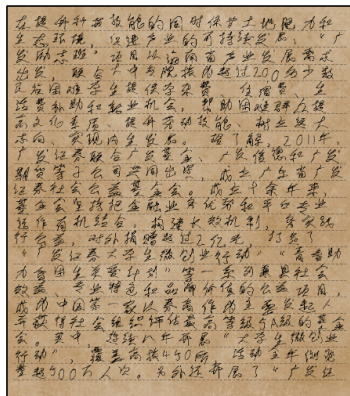 在提升科技效能的同时保护土地肥力和
生态环境，促进产业的可持续发展。“广
发励志班”项目以海南省产业发展需求
出发，联合大中专院校为超过200名少数
民族困难学生提供学杂费、住宿费、生
活费补助和就业机会，帮助困难群众提
高文化素质、提升劳动技能、树立远大
志向、实现内生发展。据了解，2011年，
广发证券联合广发基金、广发信德和广发
期货等子公司共同出资，成立广东省广发
证券社会公益基金会。成立十余年来，
基金会坚持把金融业务优势和平台专业
运作有机结合，构建长效机制，务实践
行公益，对外捐赠超过2亿元，打造了
“广发证券大学生微创业行动”“青苗助
力乡困生关爱计划”等一系列兼具社会
效益、专业特色和品牌价值的公益项目，
成为中国第一家以券商作为主要发起人
并获得社会组织评估最高等级5A级的基金
会。其中，持续八年开展“大学生微创业
行动”，覆盖高校450所，活动全年浏览
量超500万人次。另外还开展了“广发证